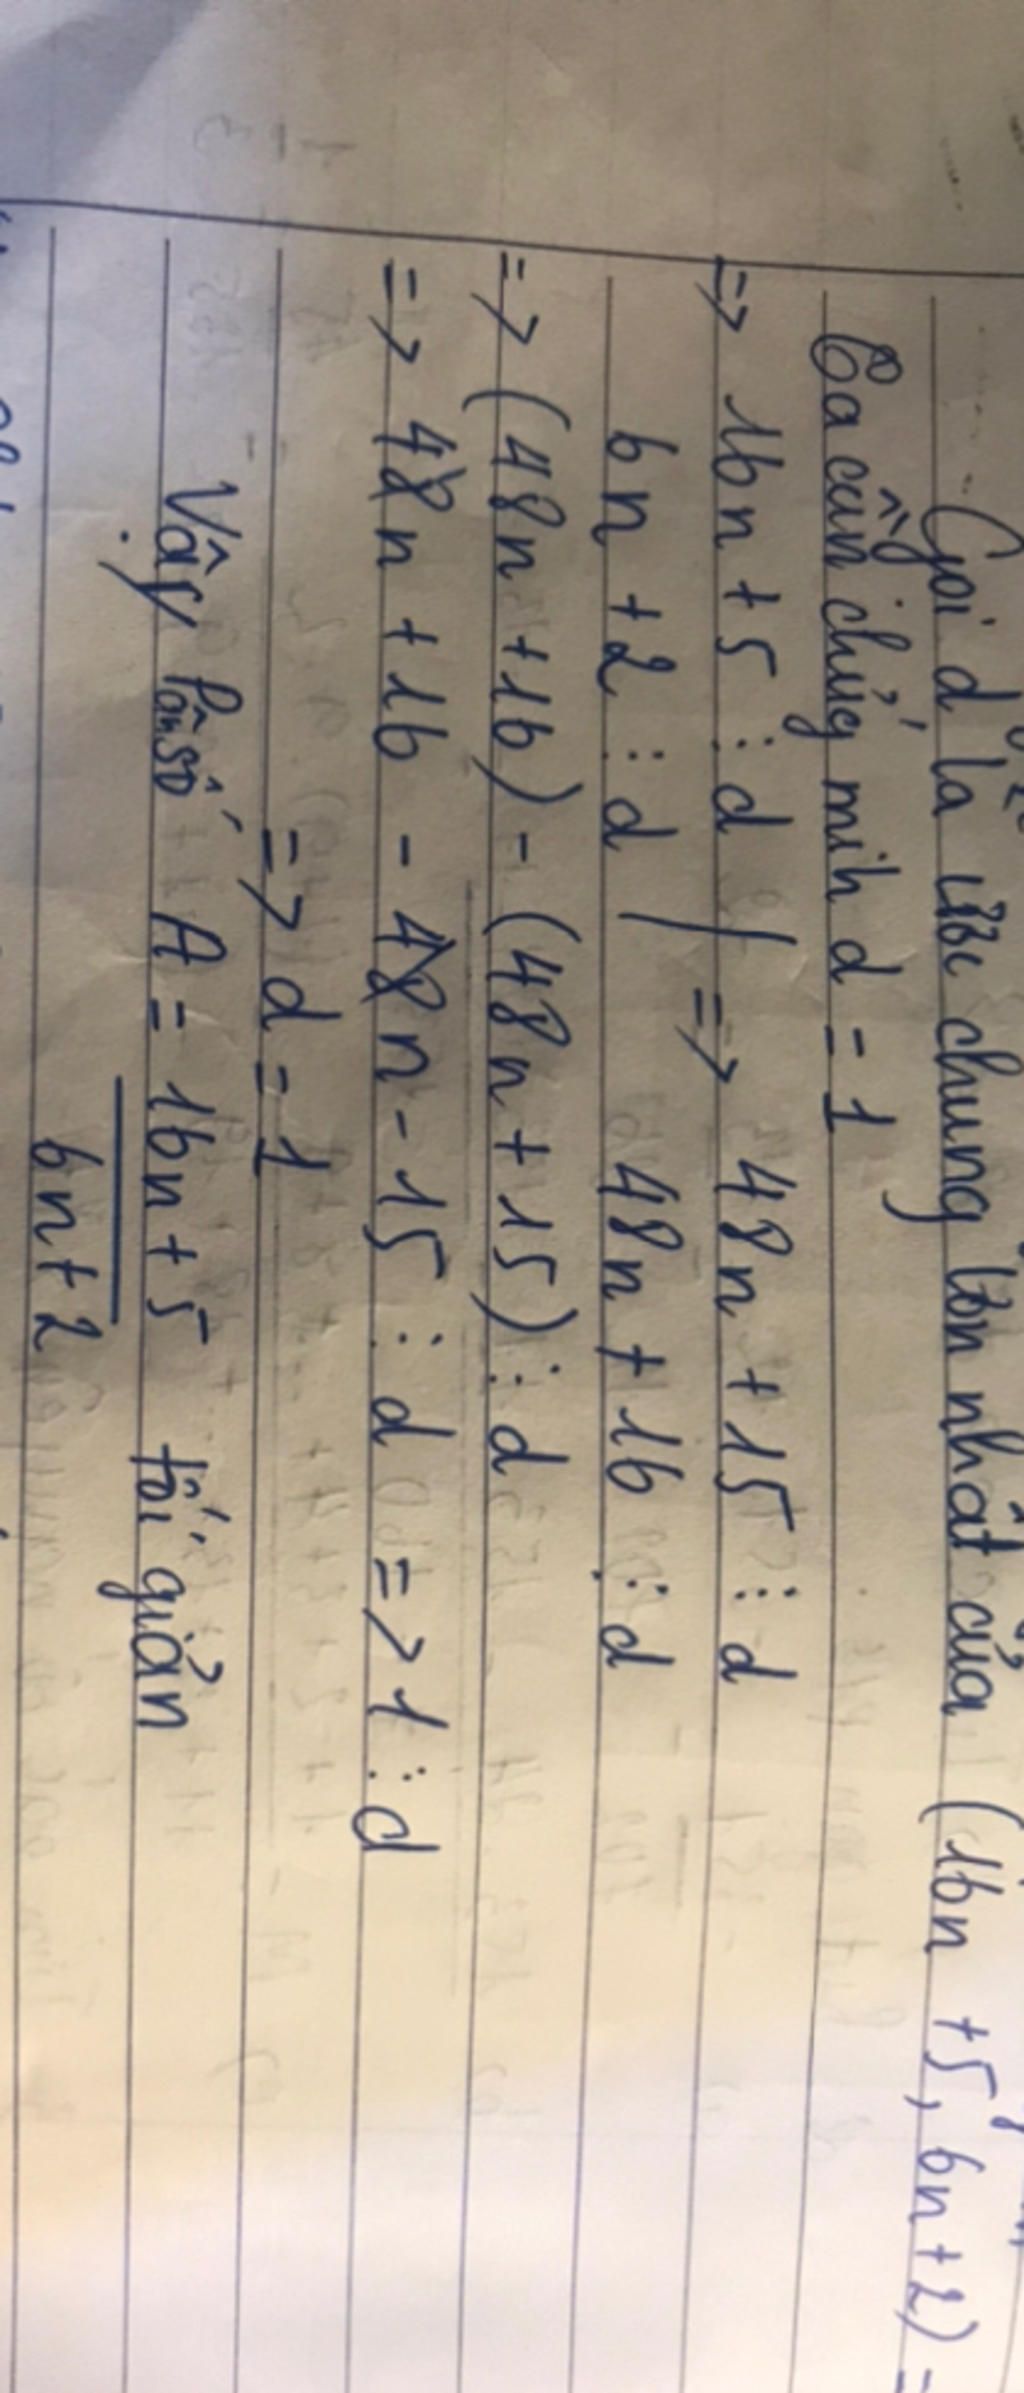 Gọi d là ước chung lớn nhất của (16n + 5, 6n + 2) =
Ta cần chứng mih d = 1
=> 16n + 5 ⋮ d | => 48n + 15 ⋮ d
6n + 2 ⋮ d | 48n + 16 ⋮ d
=> (48n + 16) - (48n + 15) ⋮ d
=> 48n + 16 - 48n - 15 ⋮ d => 1 ⋮ d
=> d = 1
Vậy Pân số A = 16n + 5 tối giản
6n + 2